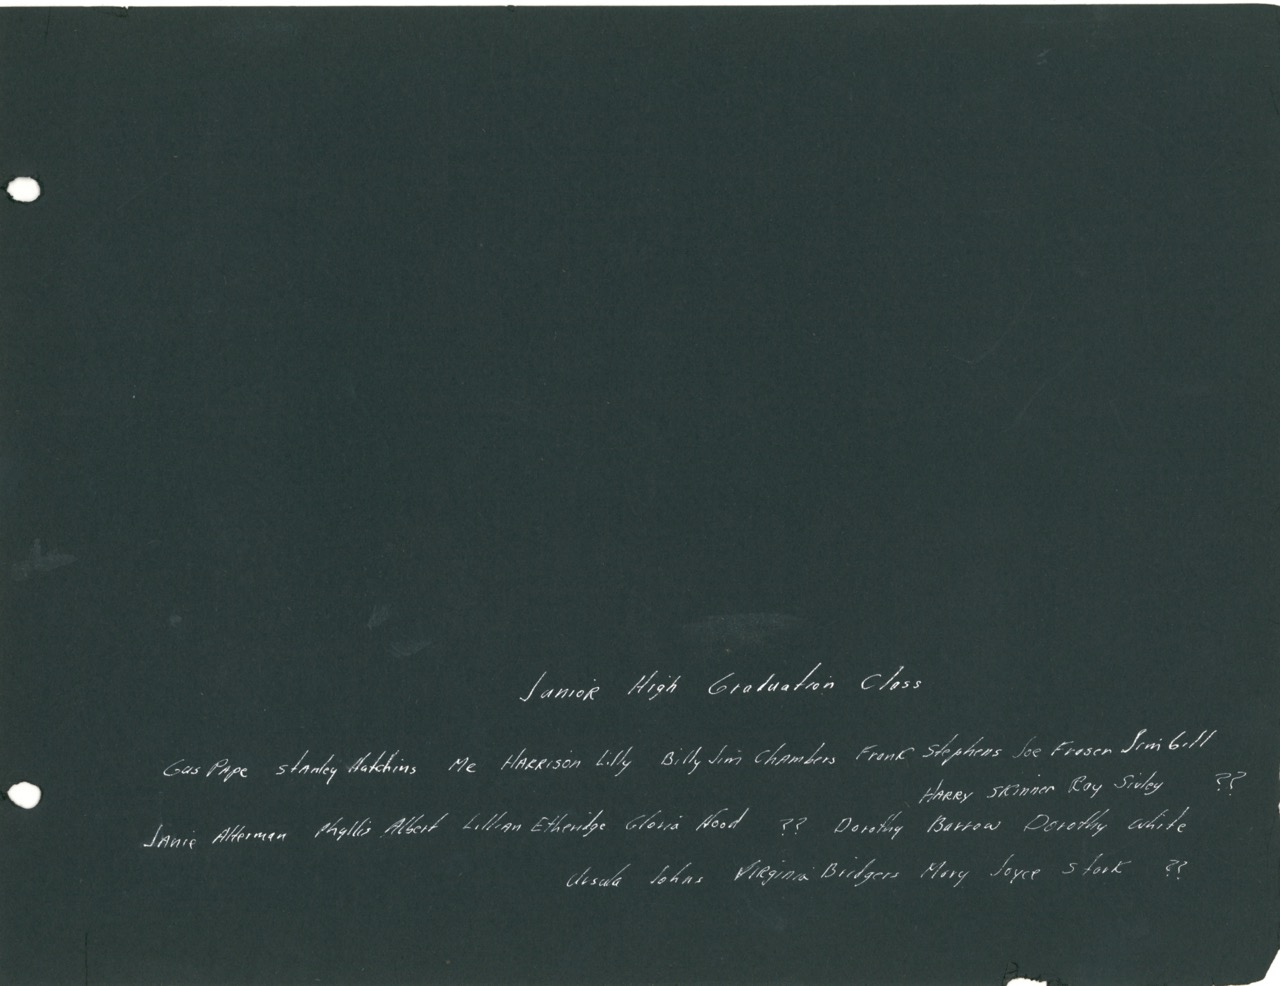 Junior High Graduation Class
Gus Pape Stanley Hutchins Me Harrison Lilly Billy Jim Chambers Frank Stephens Joe Fraser Jim Gill
Harry Skinner Ray Sivley ??
Janie Alterman Phyllis Albert Lillian Etheridge Gloria Hood ?? Dorothy Barrow Dorothy White
Ursula Johns Virginia Bridgers Mary Joyce Stark ??